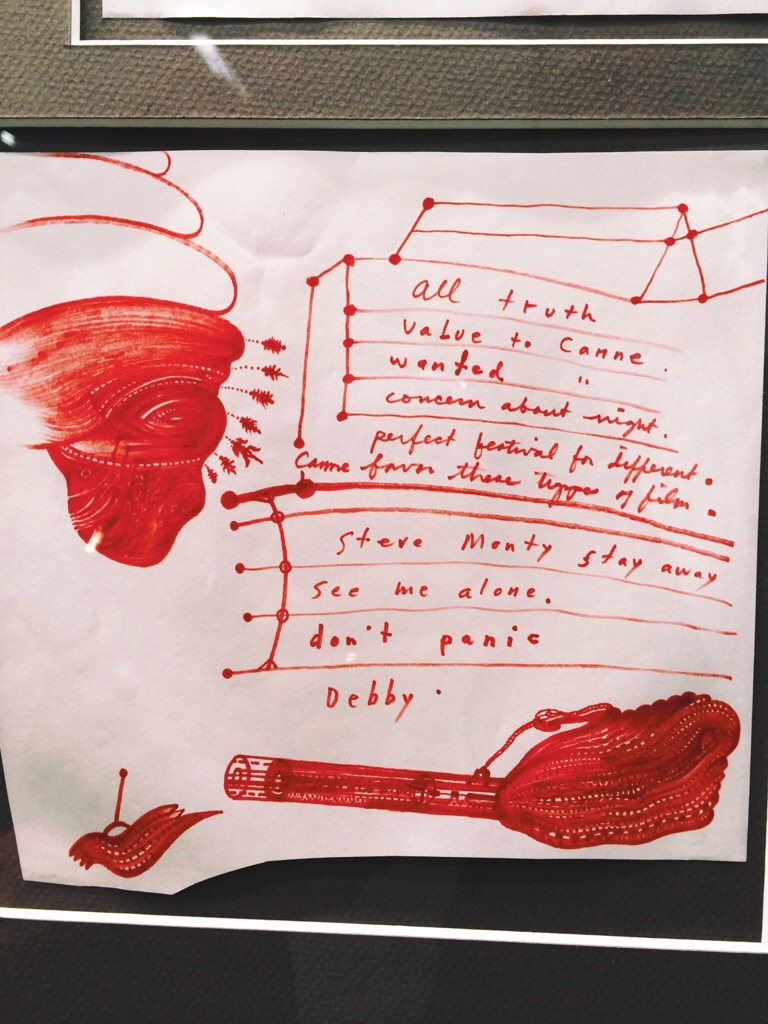 all truth
value to Canne.
wanted "
concern about night.
perfect festival for different.
Canne favor these types of film.
Steve Monty stay away
see me alone.
don't panic
Debby.